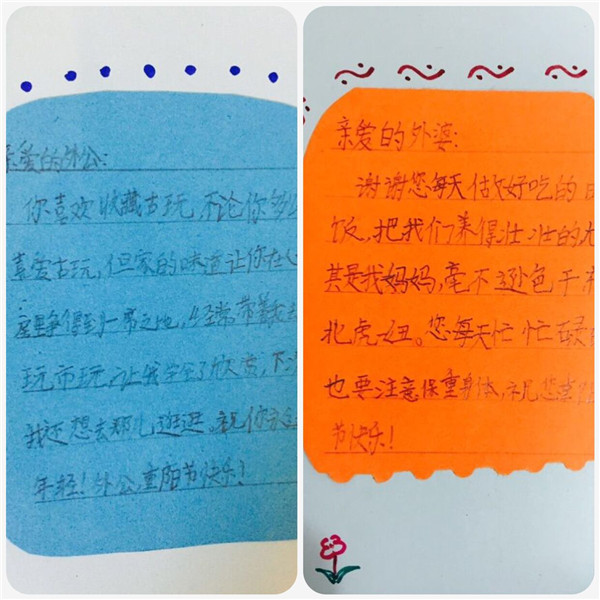 亲爱的外公:
你喜欢收藏古玩,不论你多么
喜爱古玩,但家的味道让你在心
里争得到一席之地,经常带着我去
玩市玩,让我学会了欣赏,下次
我还想去那儿逛逛。祝你永
年轻!外公,重阳节快乐!
亲爱的外婆:
谢谢您每天做好吃的
饭,把我们养得壮壮的,尤
其是我妈妈,毫不逊色于东
北虎妞。您每天忙忙碌
也要注意保重身体,祝您重阳
节快乐!